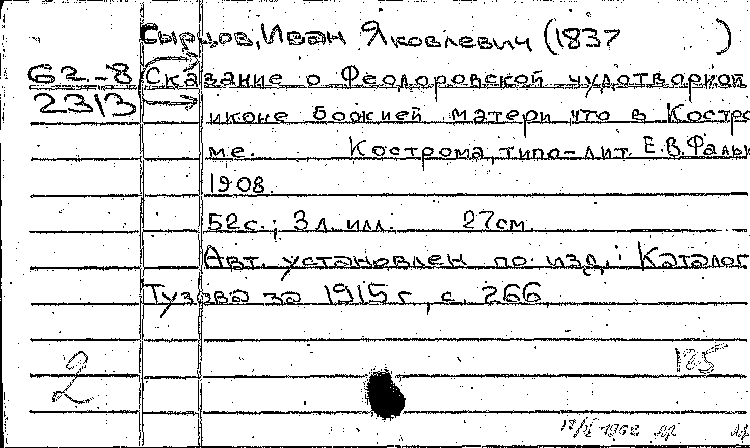 Сырцов, Иван Яковлевич (1837 )
62-8 Сказание о Феодоровской чудотворной
2313
иконе Божией матери что в Костро
ме. Кострома, типо-лит. Е.В. Фальк
1908.
52с.; 3 л. илл. 27см.
Авт. установлен по изд.: Каталог
Тузова за 1915г., с. 266.
185
2